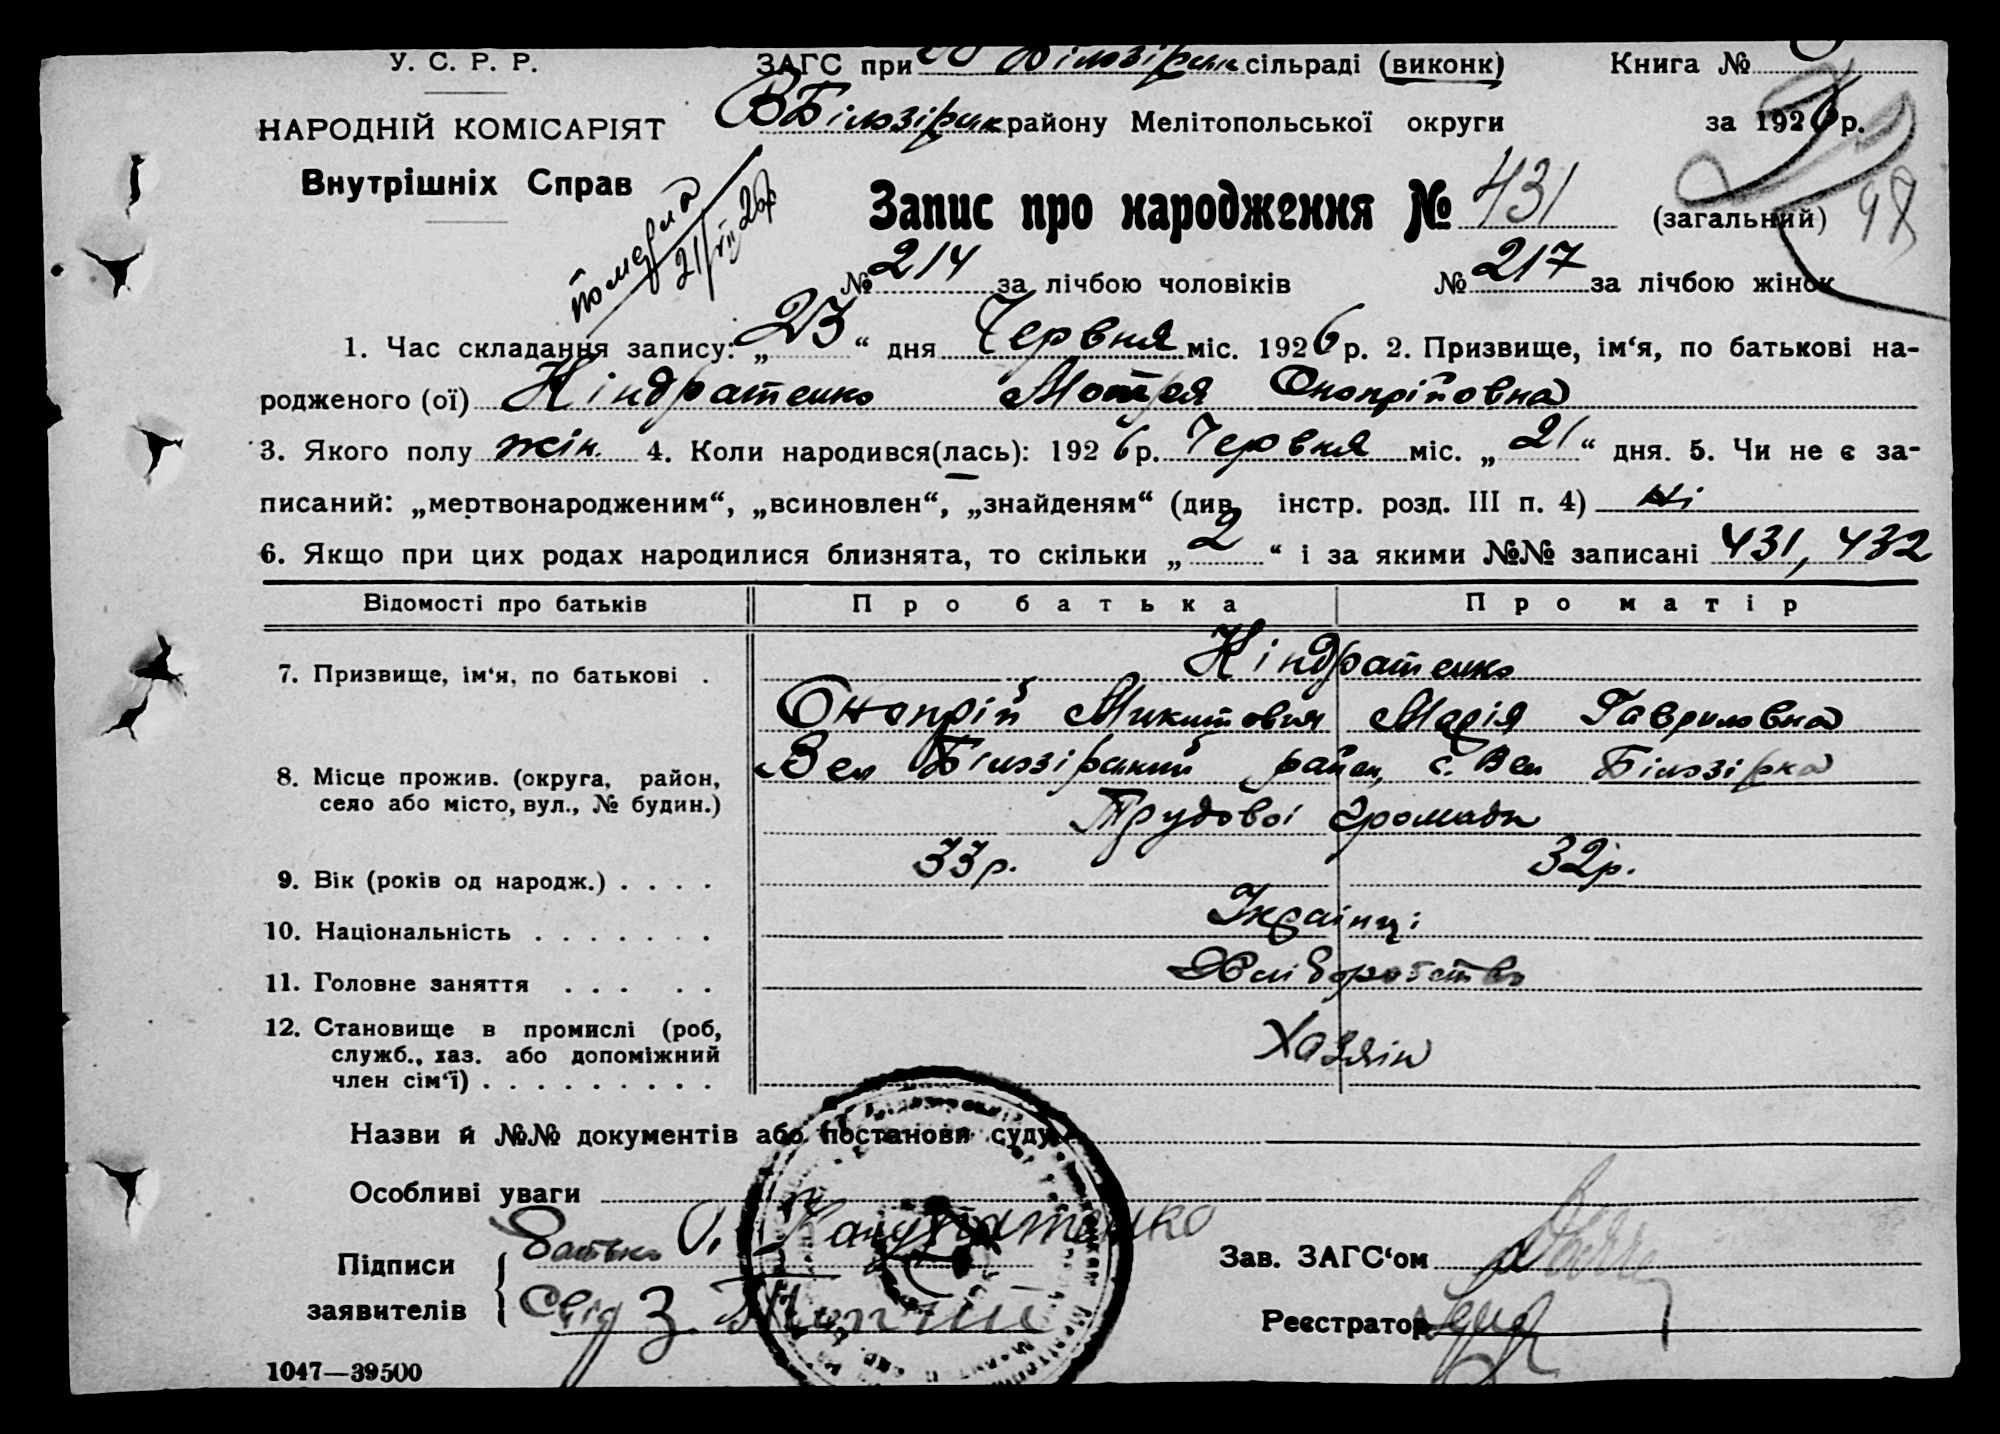 У. С. Р. Р. ЗАГС при Білозірськ сільраді (виконк) Книга №
НАРОДНІЙ КОМІСАРІЯТ В Білозірськ району Мелітопольської округи за 1926 р.
Внутрішніх Справ
померла 21/VII 26р
Запис про народження № 431 (загальний) 98
№ 214 за лічбою чоловіків № 217 за лічбою жінок
1. Час складання запису: „23“ дня Червня міс. 1926 р. 2. Призвище, ім‘я, по батькові на-
родженого (ої) Кіндратенко Мотря Онопріївна
3. Якого полу жін. 4. Коли народився(лась): 1926 р. Червня міс. „21“ дня. 5. Чи не є за-
писаний: „мертвонародженим“, „всиновлен“, „знайденям“ (див. інстр. розд. III п. 4) ні
6. Якщо при цих родах народилися близнята, то скільки „2“ і за якими №№ записані 431, 432
Відомості про батьків Про батька Про матір
7. Призвище, ім‘я, по батькові . Кіндратенко
Онопрій Микитович Марія Гавриловна
8. Місце прожив. (округа, район, село або місто, вул., № будин.) Вел Білозірський район, с. Вел Білозірка
Трудової громади
9. Вік (років од народж.) . . . . 33р. 32р.
10. Національність . . . . . . . Українці
11. Головне заняття . . . . . Хліборобство
12. Становище в промислі (роб,
служб., хаз. або допоміжний Хазяін
член сім‘ї) . . . . . . . . .
Назви й №№ документів або постанови суду
Особливі уваги
Підписи заявителів Батько О. Кондратенко
Свід З.
Зав. ЗАГС‘ом
Реєстратор
1047—39500